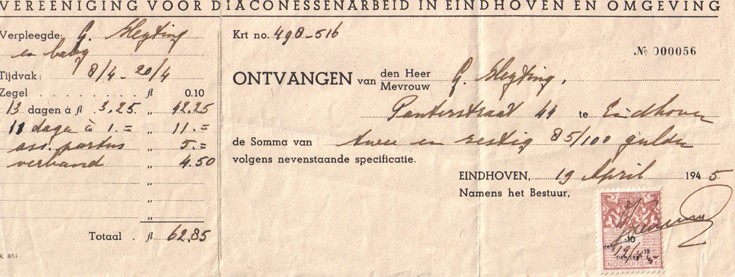 VEREENIGING VOOR DIACONESSENARBEID IN EINDHOVEN EN OMGEVING
Verpleegde: G. Slegting
en baby
Tijdvak: 8/4 - 20/4
Zegel . . . . . fl 0.10
13 dagen à fl 3.25 " 42.25
11 dagen à 1.= " 11.=
ass. partus " 5.=
verband " 4.50
"
"
Totaal . fl 62,85
K 853
Krt no. 498-516
No 000056
ONTVANGEN van den Heer
Mevrouw
G. Slegting,
Panterstraat 44 te Eindhoven
de Somma van twee en zestig 85/100 gulden
volgens nevenstaande specificatie.
EINDHOVEN, 19 April 1945
Namens het Bestuur,
10
19/4